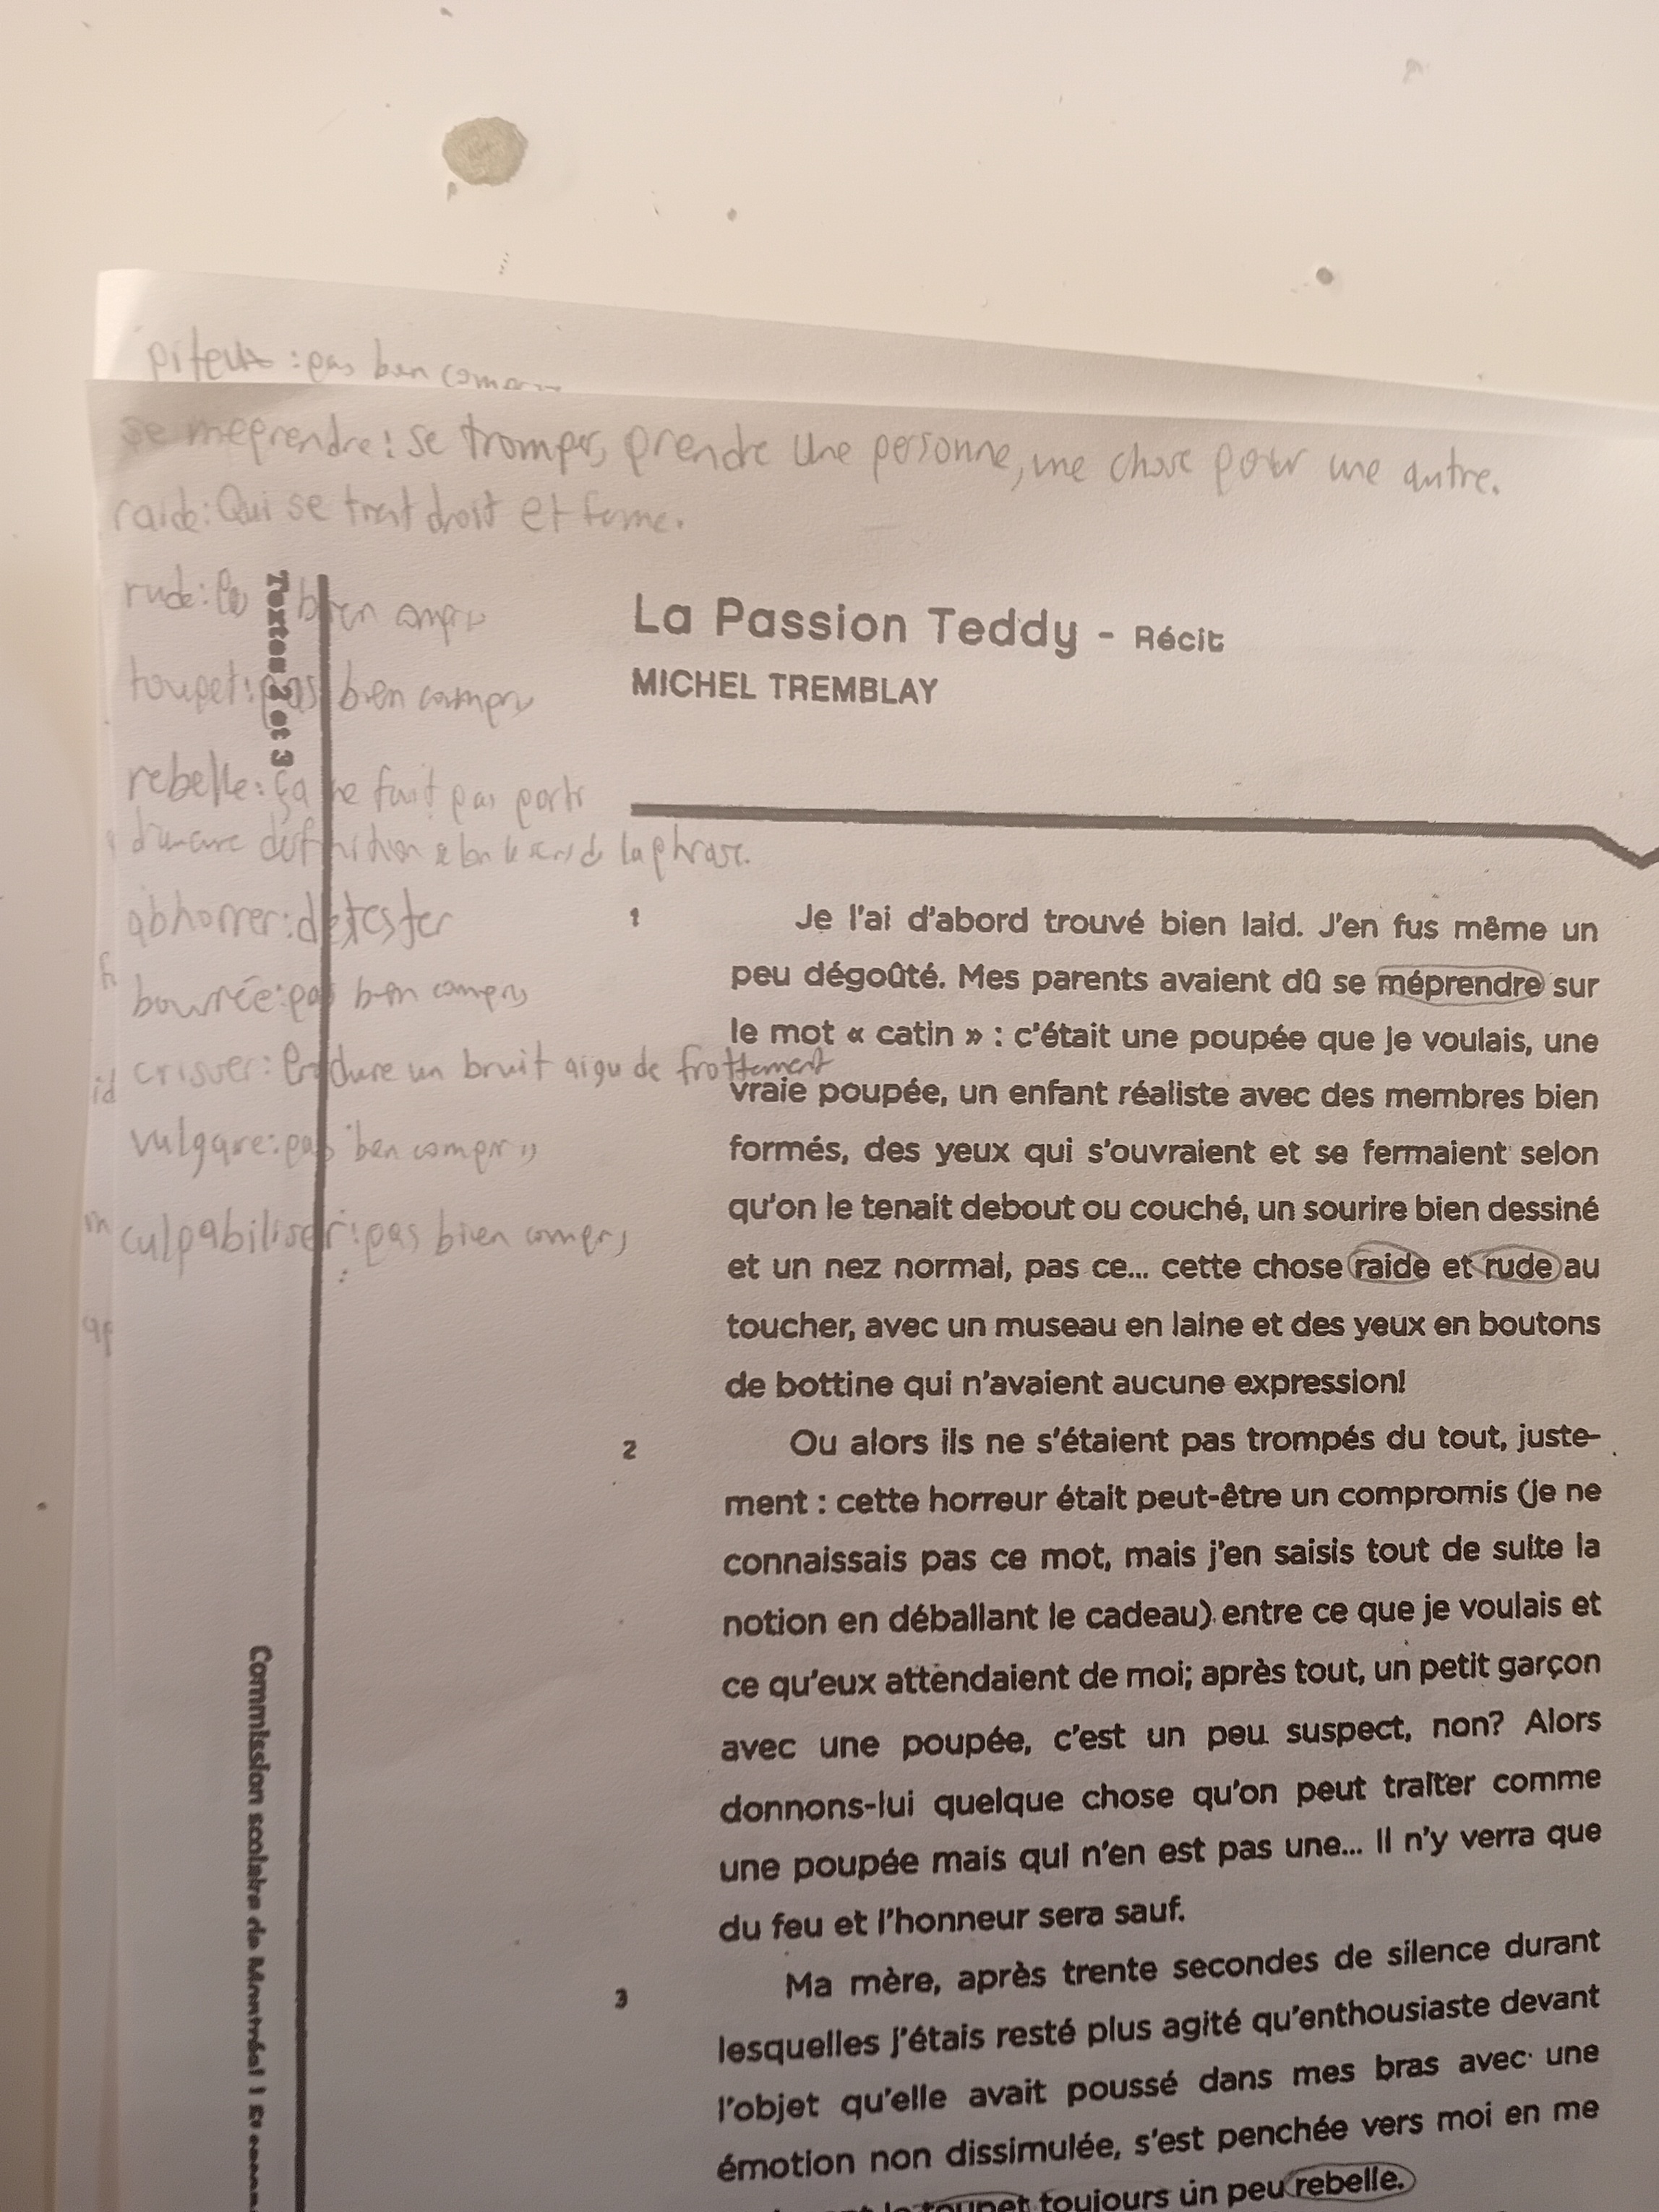 piteux : pas bien
se méprendre : se tromper, prendre une personne, une chose pour une autre.
raide : Qui se tient droit et ferme.
rude : bien compris
toupet : pas bien compris
rebelle : ça ne fait pas partie
d'aucune définition selon le sens de la phrase.
abhorrer : détester
bourrée : pas bien compris
crisser : Produire un bruit aigu de frottement
vulgaire : pas bien compris
culpabiliser : pas bien compris
Textes 2 et 3
La Passion Teddy - Récit
MICHEL TREMBLAY
1 Je l'ai d'abord trouvé bien laid. J'en fus même un
peu dégoûté. Mes parents avaient dû se méprendre sur
le mot « catin » : c'était une poupée que je voulais, une
vraie poupée, un enfant réaliste avec des membres bien
formés, des yeux qui s'ouvraient et se fermaient selon
qu'on le tenait debout ou couché, un sourire bien dessiné
et un nez normal, pas ce... cette chose raide et rude au
toucher, avec un museau en laine et des yeux en boutons
de bottine qui n'avaient aucune expression!
2 Ou alors ils ne s'étaient pas trompés du tout, juste-
ment : cette horreur était peut-être un compromis (je ne
connaissais pas ce mot, mais j'en saisis tout de suite la
notion en déballant le cadeau) entre ce que je voulais et
ce qu'eux attendaient de moi; après tout, un petit garçon
avec une poupée, c'est un peu suspect, non? Alors
donnons-lui quelque chose qu'on peut traiter comme
une poupée mais qui n'en est pas une... Il n'y verra que
du feu et l'honneur sera sauf.
3 Ma mère, après trente secondes de silence durant
lesquelles j'étais resté plus agité qu'enthousiaste devant
l'objet qu'elle avait poussé dans mes bras avec une
émotion non dissimulée, s'est penchée vers moi en me
toupet toujours un peu rebelle.
Commission scolaire de Montréal